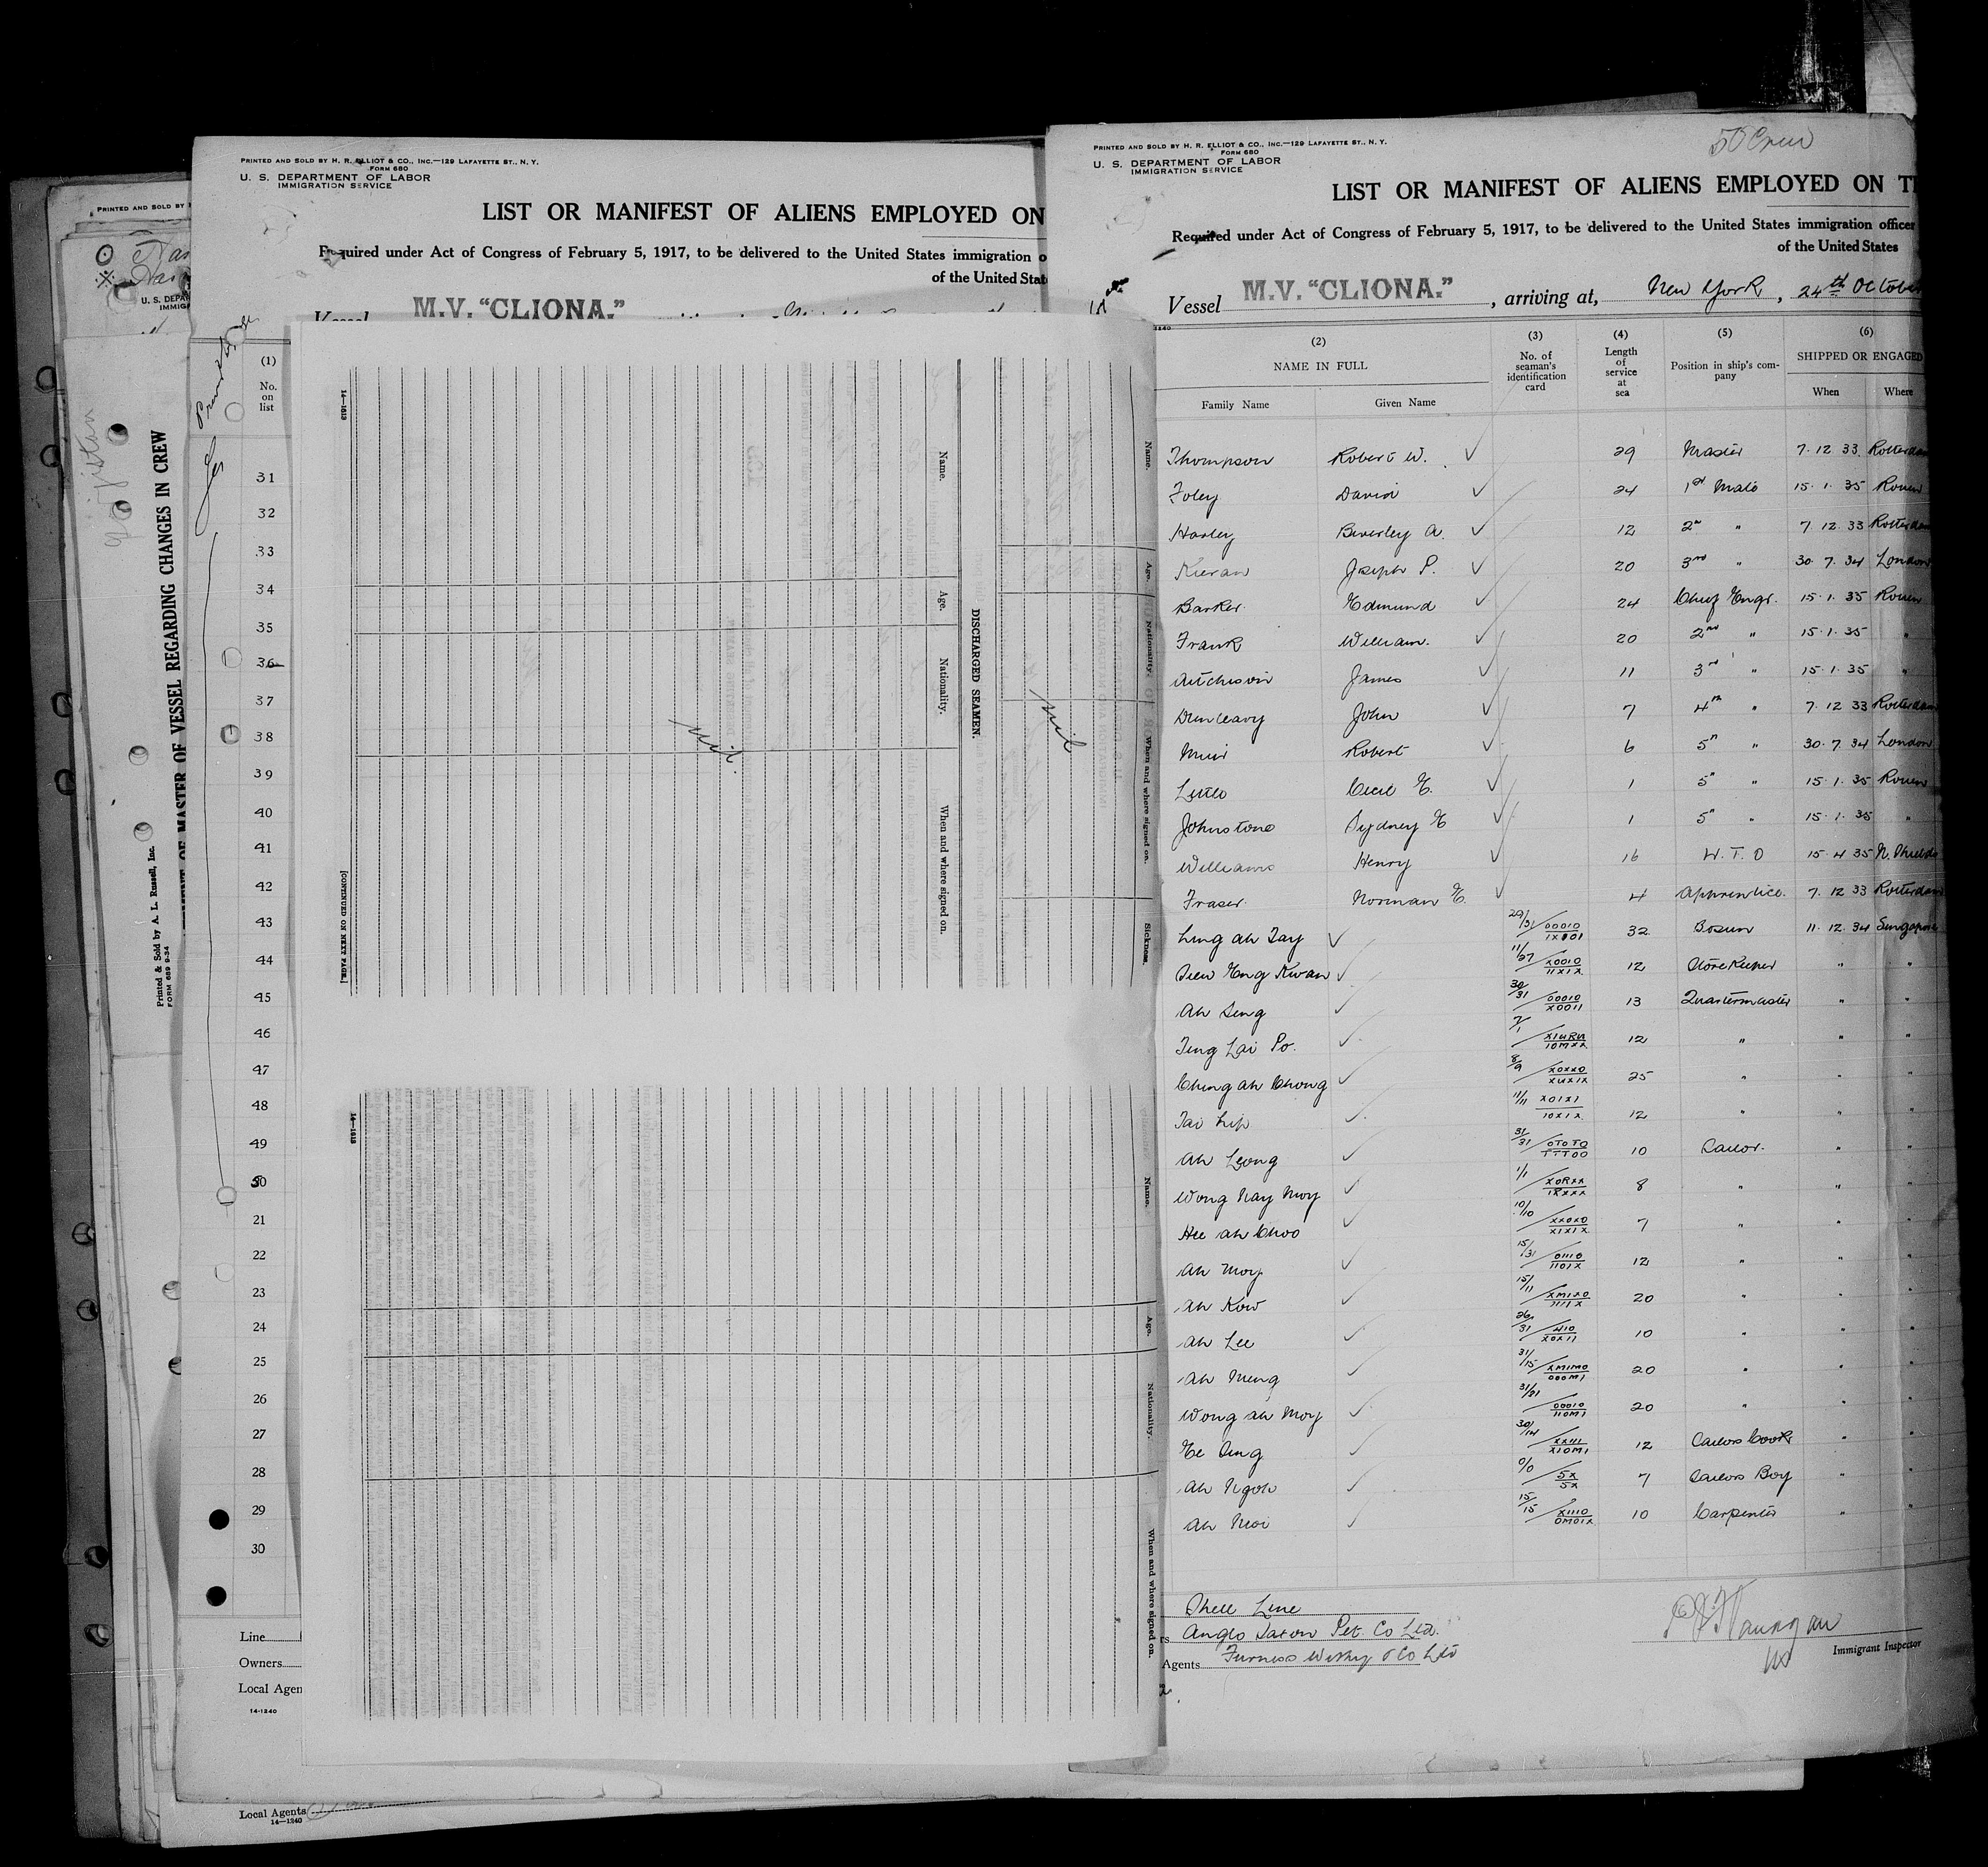 PRINTED AND SOLD BY
U. S. DEPA
IMMIG
STATEMENT OF MASTER OF VESSEL REGARDING CHANGES IN CREW
Printed & Sold by A. L. Russell, Inc.
FORM 689 9-34
PRINTED AND SOLD BY H. R. ELLIOT & CO., INC.—129 LAFAYETTE ST., N. Y.
FORM 680
U. S. DEPARTMENT OF LABOR
IMMIGRATION SERVICE
LIST OR MANIFEST OF ALIENS EMPLOYED ON
Required under Act of Congress of February 5, 1917, to be delivered to the United States immigration o
of the United Stat
Vessel M.V. “CLIONA.”
(1)
No.
on
list
31
32
33
34
35
36
37
38
39
40
41
42
43
44
45
46
47
48
49
50
21
22
23
24
25
26
27
28
29
30
Line
Owners
Local Agen
14-1240
Local Agents
14—1240
14—1613
Name.
Age.
Nationality.
When and where signed on.
DISCHARGED SEAMEN.
nil.
[CONTINUED ON NEXT PAGE]
Name.
Age.
Nationality.
When and where signed on.
Sickness.
nil
14—1613
Name.
Age.
Nationality.
When and where signed on.
50 Crew
PRINTED AND SOLD BY H. R. ELLIOT & CO., INC.—129 LAFAYETTE ST., N. Y.
FORM 680
U. S. DEPARTMENT OF LABOR
IMMIGRATION SERVICE
LIST OR MANIFEST OF ALIENS EMPLOYED ON T
Required under Act of Congress of February 5, 1917, to be delivered to the United States immigration officer
of the United States
Vessel M.V. “CLIONA.”, arriving at, New York, 24th October
(2) (3) (4) (5) (6)
NAME IN FULL No. of seaman's identification card Length of service at sea Position in ship's company SHIPPED OR ENGAGED
Family Name Given Name When Where
Thompson Robert W. 29 Master 7. 12 33. Rotterdam
Foley David 24 1st Mate 15. 1. 35 Rouen
Harley Beverley A. 12 2nd " 7. 12. 33 Rotterdam
Kieran Joseph P. 20 3rd " 30. 7. 34 London
Barker Edmund 24 Chief Engr. 15. 1. 35 Rouen
Frank William. 20 2nd " 15. 1. 35 "
Aitchison James 11 3rd " 15. 1. 35 "
Dunleavy John 7 4th " 7. 12 33 Rotterdam
Muir Robert 6 5th " 30. 7. 34 London
Little Cecil E. 1 5" " 15. 1. 35 Rouen
Johnstone Sydney E 1 5" " 15. 1. 35 "
Williams Henry 16 W. T. O 15. 4 35 N. Shields
Fraser Norman E. 4 Apprentice. 7. 12 33 Rotterdam
Ling Ah Tay 29/31 00010/1XX01 32 Bosun 11. 12. 34 Singapore
Siew Eng Kwan 11/27 X0010/11X1X 12 Store Keeper " "
Ah Seng 30/31 00010/X0011 13 Quartermaster " "
Teng Lai Po. 12 " " "
Ching Ah Chong 8/9 X0XX0/XUX1X 25 " " "
Tai Lip 11/11 X01X1/10X1X 12 " " "
Ah Leong 31/31 10 Sailor. " "
Wong Nay Moy 1/1 X0RXX/1RXXX 8 " " "
Hee Ah Choo 10/10 XX0X0/X1X1X 7 " " "
Ah Moy 15/31 01110/1101X 12 " " "
Ah Kow 15/11 XM1X0/1111X 20 " " "
Ah Lee 26/31 410/X0X11 10 " " "
Ah Meng 31/15 XM1M0/000M1 20 " " "
Wong Ah Moy 31/21 00010/110M1 20 " " "
Ee Seng 30/14 XX111/X10M1 12 Sailors Cook " "
Ah Ngoh 0/0 5X/5X 7 Sailors Boy " "
Ah Moi 15/15 X1110/0M01X 10 Carpenter " "
Shell Line
rs Anglo Saxon Pet. Co Ltd.
Agents Furness Withy & Co Ltd
Immigrant Inspector